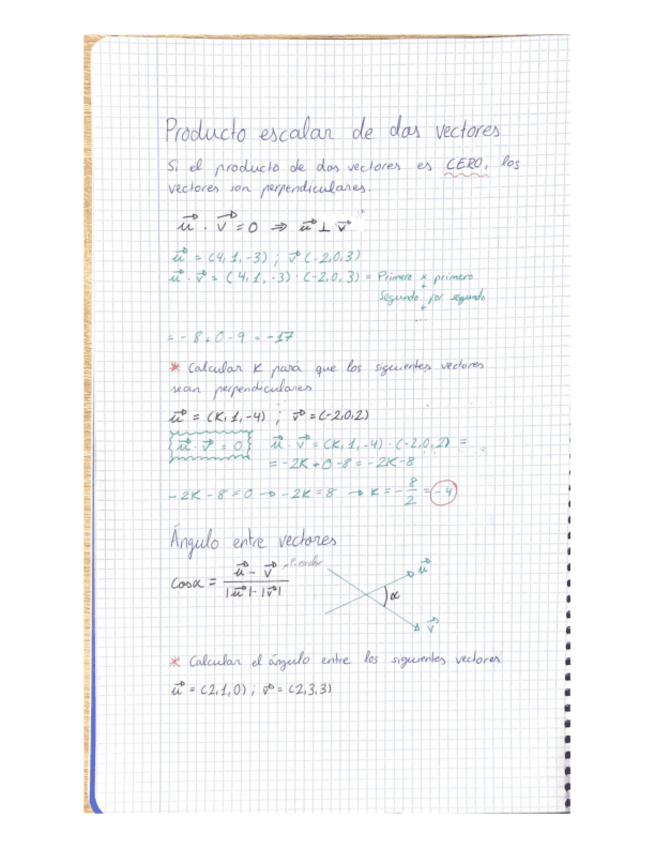 Producto escalar de dos vectores
Si el producto de dos vectores es CERO, los
vectores son perpendiculares.
u⃗ · v⃗ = 0 ⇒ u⃗ ⊥ v⃗
u⃗ = (4,1,-3) ; v⃗ (-2,0,3)
u⃗ · v⃗ = (4,1,-3) · (-2,0,3) = Primero x primero
+
Segundo por segundo
+
...
= -8+0-9 = -17
* Calcular K para que los siguientes vectores
sean perpendiculares
u⃗ = (K,1,-4) ; v⃗ = (-2,0,2)
u⃗ · v⃗ = 0 u⃗ · v⃗ = (K,1,-4) · (-2,0,2) =
= -2K+0-8 = -2K-8
-2K-8=0 → -2K=8 → K = -8/2 = -4
Ángulo entre vectores
Cosα = u⃗ - v⃗ / |u⃗|·|v⃗|
α
u⃗
v⃗
* Calcular el ángulo entre los siguientes vectores
u⃗ = (2,1,0) ; v⃗ = (2,3,3)